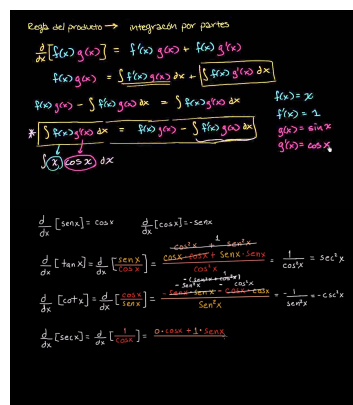 Regla del producto → integración por partes
d/dx [f(x) g(x)] = f'(x) g(x) + f(x) g'(x)
f(x) g(x) = ∫ f'(x) g(x) dx + ∫ f(x) g'(x) dx
f(x) g(x) - ∫ f'(x) g(x) dx = ∫ f(x) g'(x) dx
f(x) = x
f'(x) = 1
* ∫ f(x) g'(x) dx = f(x) g(x) - ∫ f'(x) g(x) dx
g(x) = sin x
g'(x) = cos x
∫ x cos x dx
d/dx [senx] = cosx d/dx [cosx] = -senx
d/dx [tanx] = d/dx [senx/cosx] = cosx·cosx + senx·senx / cos²x = 1/cos²x = sec²x
cos²x + sen²x 1
d/dx [cotx] = d/dx [cosx/senx] = -senx·senx - cosx·cosx / sen²x = -1/sen²x = -csc²x
-sen²x - cos²x
d/dx [secx] = d/dx [1/cosx] = 0·cosx + 1·senx